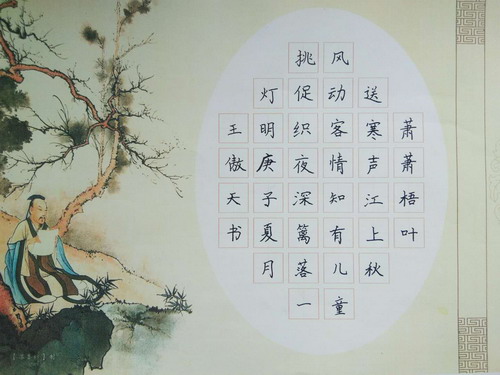 萧萧梧叶
送寒声江上秋
风动客情知有儿童
挑促织夜深篱落一
灯明庚子夏月
王傲天书